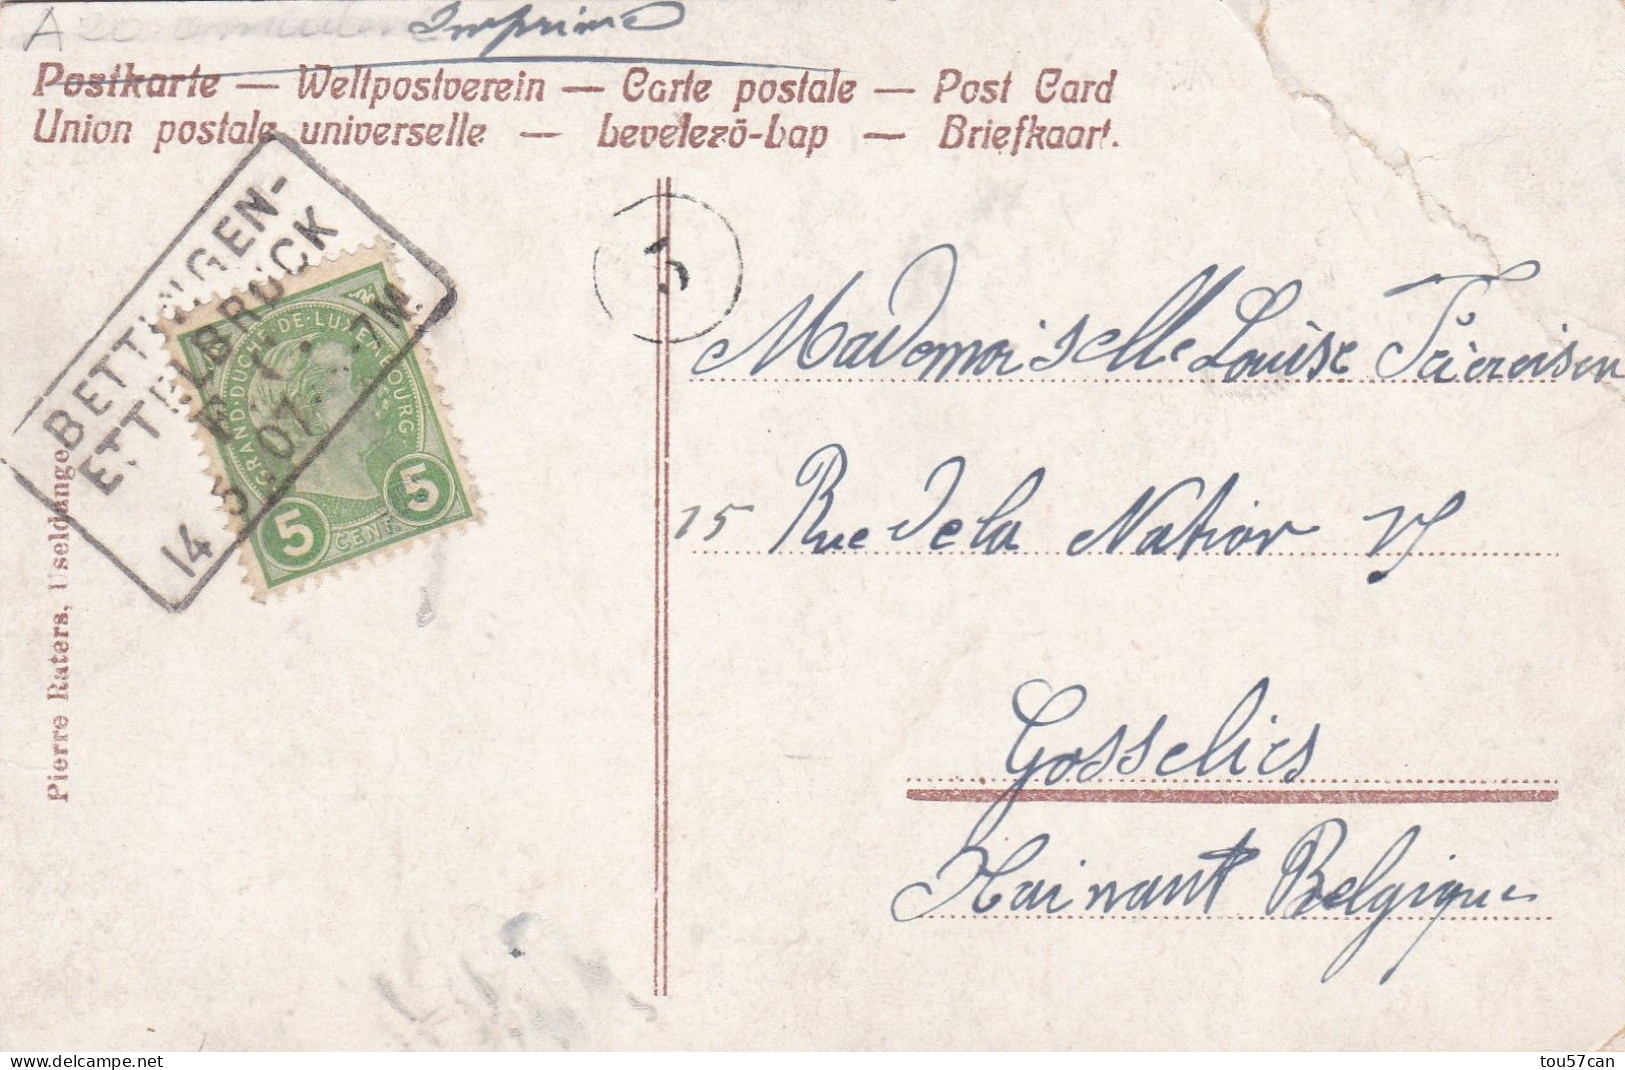 Imprimé
Postkarte — Weltpostverein — Carte postale — Post Card
Union postale universelle — Levelező-Lap — Briefkaart.
BETTINGEN-
ETTELBRÜCK
14 5 07
GRAND-DUCHÉ-DE-LUXEMBOURG.
5 CENT. 5
Pierre Raters, Useldange
Mademoiselle Louise
15 Rue de la Nation
Gosselies
Hainant Belgique
delcampe.net
tou57can